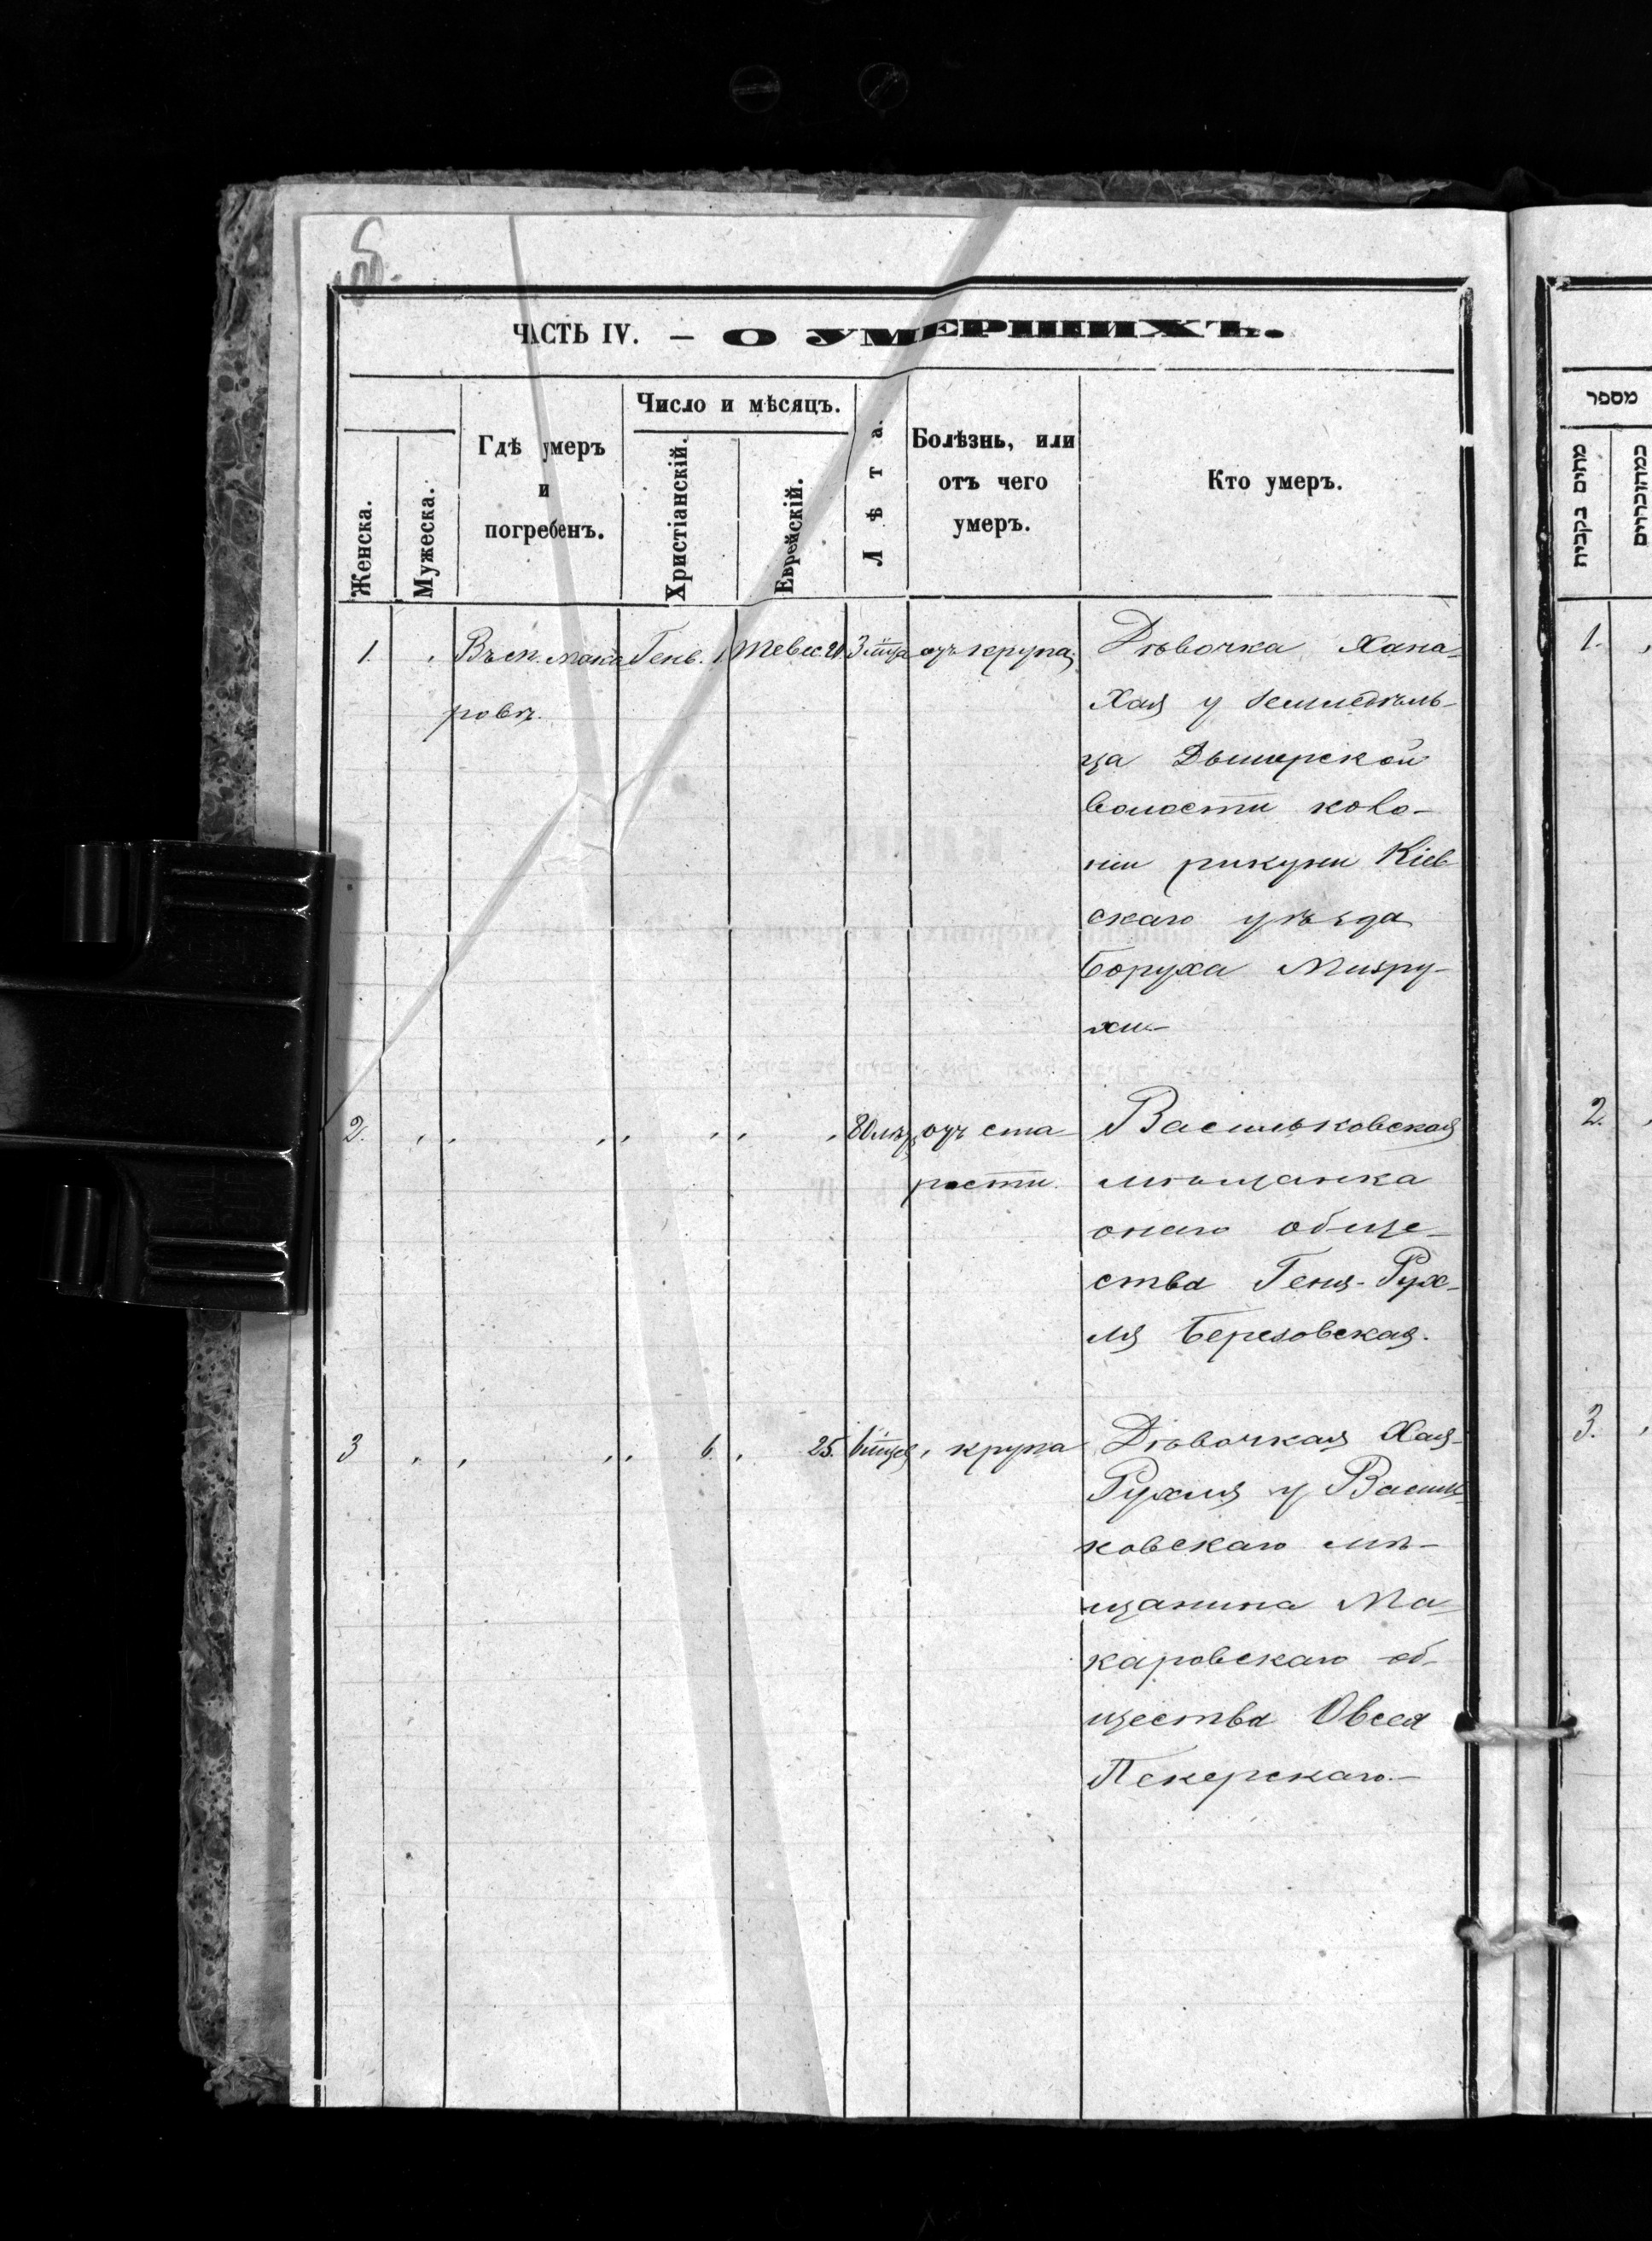 ЧАСТЬ IV. — О УМЕРШИХЪ.
Женска.
Мужеска.
Гдѣ умеръ
и
погребенъ.
Число и мѣсяцъ.
Христіанскій.
Еврейскій.
Лѣта.
Болѣзнь, или
отъ чего
умеръ.
Кто умеръ.
מספר
1. Въ м. Мака Генв. 1 Тевес. 20. 3 отъ крупа Дѣвочка Хана-
ровѣ. Хая у земледѣль-
ца Дымерской
волости коло-
ніи рикуни Кіев
скаго уѣзда
Боруха Мизру-
хи-
2. 80 лѣтъ отъ ста Васильковская
рости. мѣщанка
онаго обще-
ства Геня-Рух-
ля Березовская.
3 6. 25. 6 крупа Дѣвочкая Хая-
Рухля у Василь
ковскаго мѣ-
щанина Ма-
каровскаго об-
щества Овсея
Пекерскаго.-
1.
2.
3.